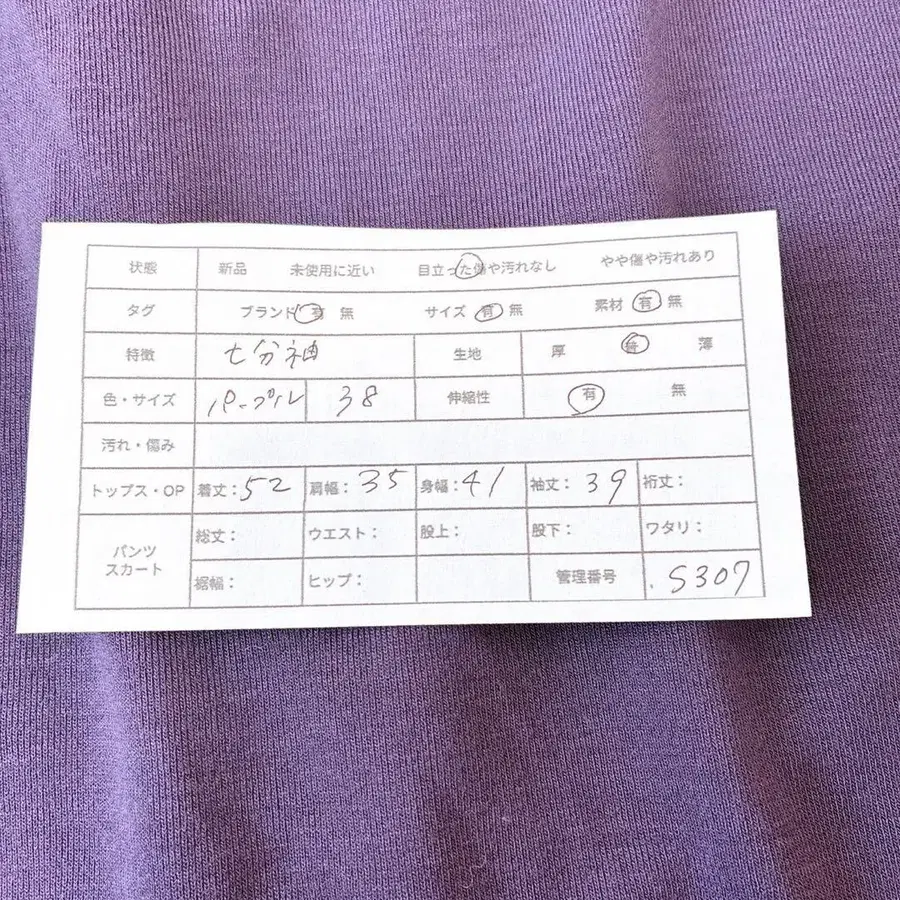 状態 新品 未使用に近い 目立った傷や汚れなし やや傷や汚れあり
タグ ブランド 有 無 サイズ 有 無 素材 有 無
特徴 七分袖 生地 厚 普 薄
色・サイズ パープル 38 伸縮性 有 無
汚れ・傷み
トップス・OP 着丈：52 肩幅：35 身幅：41 袖丈：39 裄丈：
パンツ スカート 総丈： ウエスト： 股上： 股下： ワタリ：
裾幅： ヒップ： 管理番号 S307